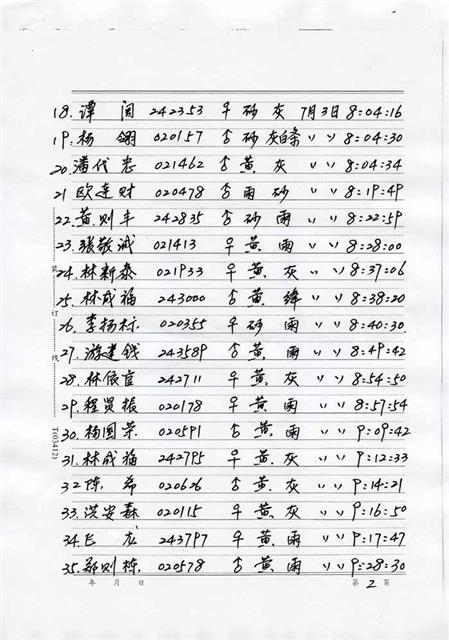 18. 谭闯 242353 ♀ 砂 灰 7月3日 8:04:16
19. 杨翎 020157 ♂ 砂 灰白条 〃 〃 8:04:30
20. 潘代忠 021462 ♂ 黄 灰 〃 〃 8:04:34
21 欧连财 020478 ♂ 雨 砂 〃 〃 8:19:49
22. 黄则丰 242835 ♂ 砂 雨 〃 〃 8:22:59
23. 张敬诚 021413 ♀ 黄 雨 〃 〃 8:28:00
24. 林新泰 021933 ♀ 黄 灰 〃 〃 8:37:06
25. 林成福 243000 ♂ 黄 绛 〃 〃 8:38:20
26. 李扬标 020355 ♀ 砂 雨 〃 〃 8:40:30
27. 游建钱 243589 ♂ 黄 雨 〃 〃 8:49:42
28. 林依官 242711 ♀ 黄 灰 〃 〃 8:54:50
29. 程贤振 020178 ♀ 黄 雨 〃 〃 8:57:54
30. 杨国荣 020591 ♂ 黄 雨 〃 〃 9:09:42
31. 林成福 242795 ♀ 黄 灰 〃 〃 9:12:33
32 陈希 020626 ♂ 黄 灰 〃 〃 9:14:21
33. 洪安森 020115 ♀ 黄 灰 〃 〃 9:16:50
34. 飞龙 243797 ♀ 黄 雨 〃 〃 9:17:47
35. 郑则栋 020578 ♂ 黄 雨 〃 〃 9:28:30
年 月 日 第 2 页
装订线
T(03412)